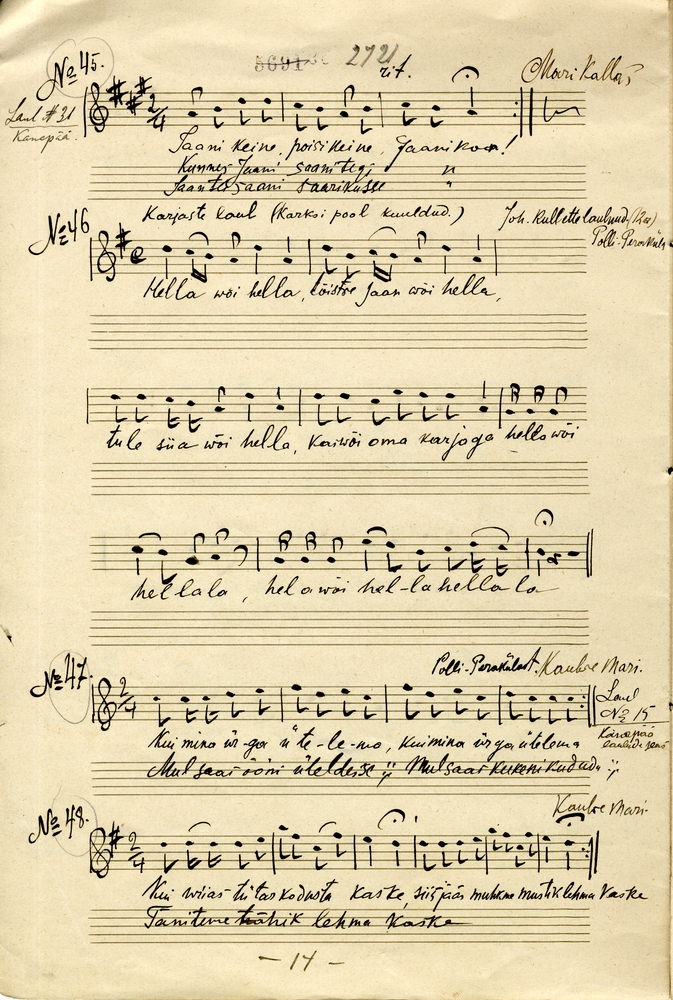 5691
2721
№ 45.
rit.
Mari Kallas
Laul # 31
Kanepää.
Jaani keine, poisikeine, Jaanikoo!
Kunnes Jaani saanitegi "
Jaanter saani saarikusee "
Karjaste laul (Karksi pool kuuldud.)
Joh. Kullette laulnud.
Polli-Peraküla
№ 46
Hella wõi hella, tõistre Jaan wõi hella,
tule siia wõi hella, kaiwõi oma karjaga hella wõi
hellala, hel a wõi hel-la hella la
№ 47.
Polli-Perakülast. Kaubre Mari.
Laul
№ 15
Kui mina ür-ga ü te-le-mo, kui mina ürga ütelema
Mul saas sööni üteldese :,: Mul saas kukeni kududa :,:
№ 48.
Kaubre Mari.
Kui wiias tütas kodusta kaske, siis jääs muhkme mustik lehma kaske
Tanitewe tähik lehma kaske
- 14 -